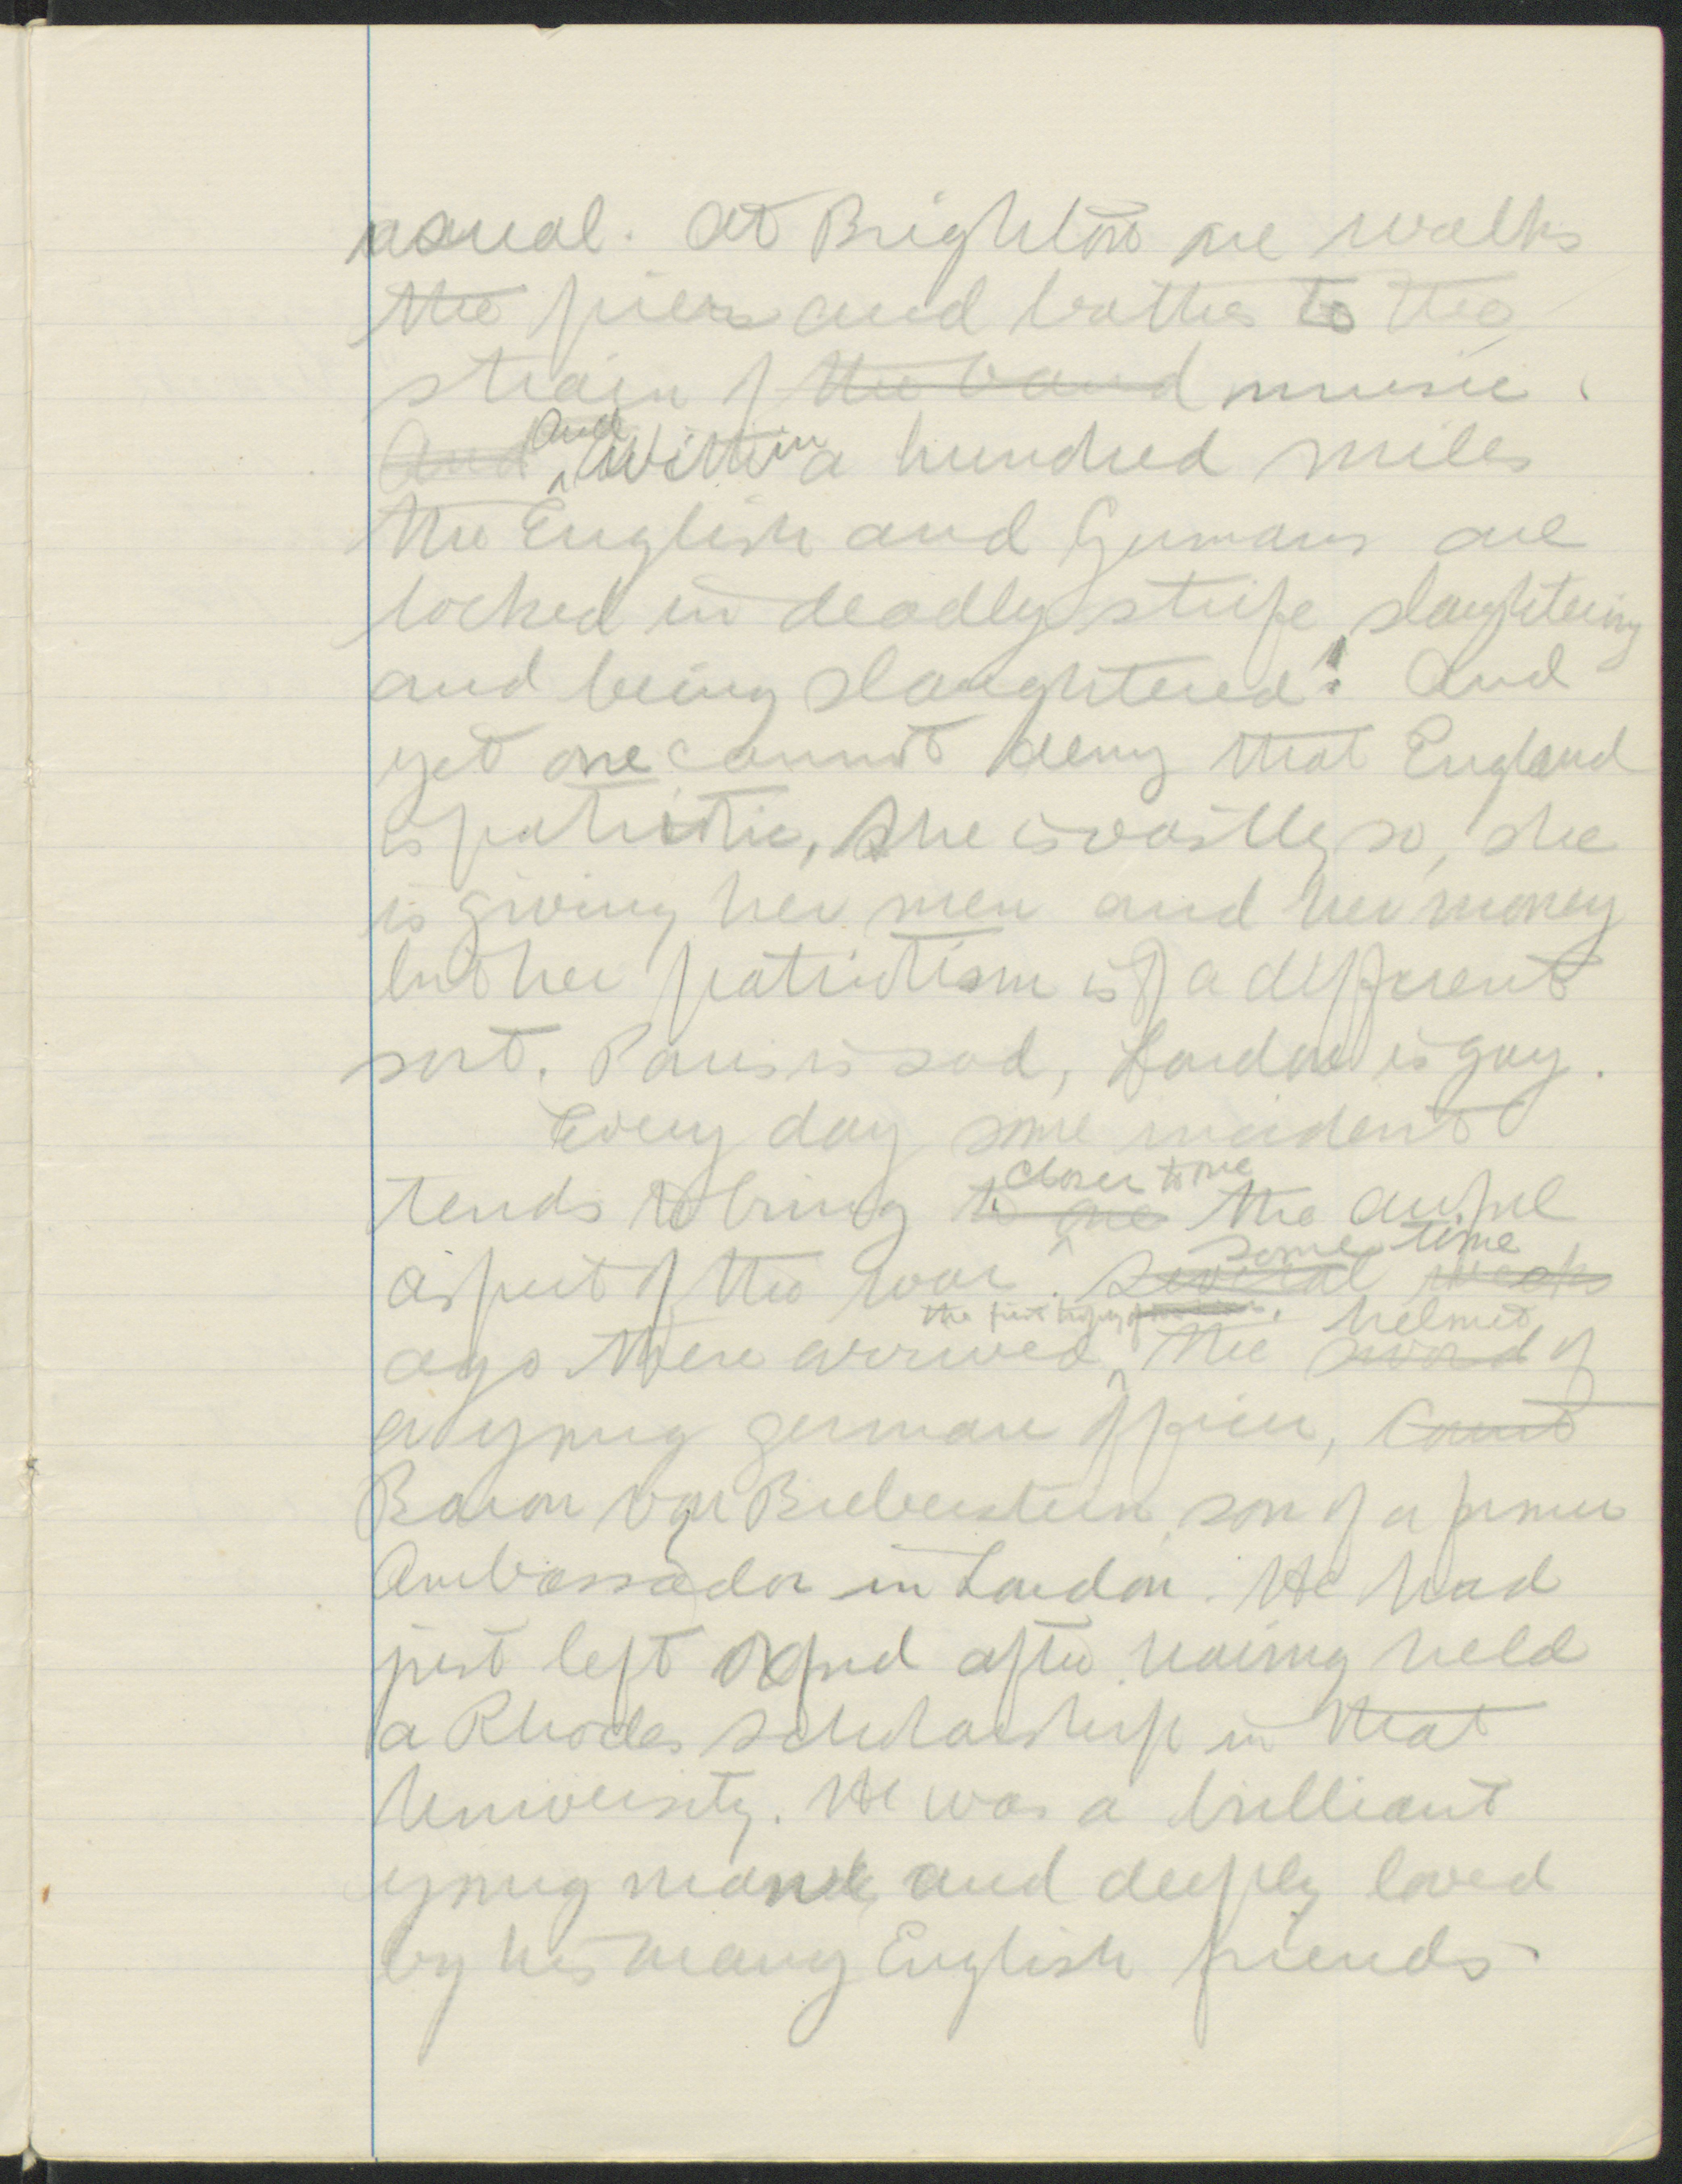 usual. At Brighton one walks
the piers and bathes to the
strain of the band music.
And And Within a hundred miles
the English and Germans are
locked in deadly strife slaughtering
and being slaughtered! And
yet one cannot deny that England
is patriotic, She is vastly so, she
is giving her men and her money
but her patriotism is of a different
sort. Paris is sad, London is gay.
Every day some incident
closer to me
tends to bring to one the awful
some time
aspect of the war. Several weeks
the first trophy of helmet
ago there arrived, the sword of
a young german officer, Count
Baron von Bieberstein son of a former
Ambassador in London. He had
just left Oxford after having held
a Rhodes Scholarship in that
University. He was a brilliant
young man and deeply loved
by his many English friends.